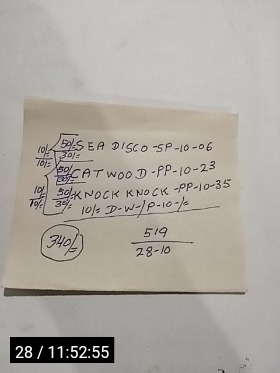 10/= 50/= SEA DISCO-SP-10-06
10/= 30/=
50/= CATWOOD-PP-10-23
10/= 50/= KNOCK KNOCK-PP-10-35
10/= 30/= 10/= D-W-/P-10-/=
340/= 519
28-10
28 / 11:52:55